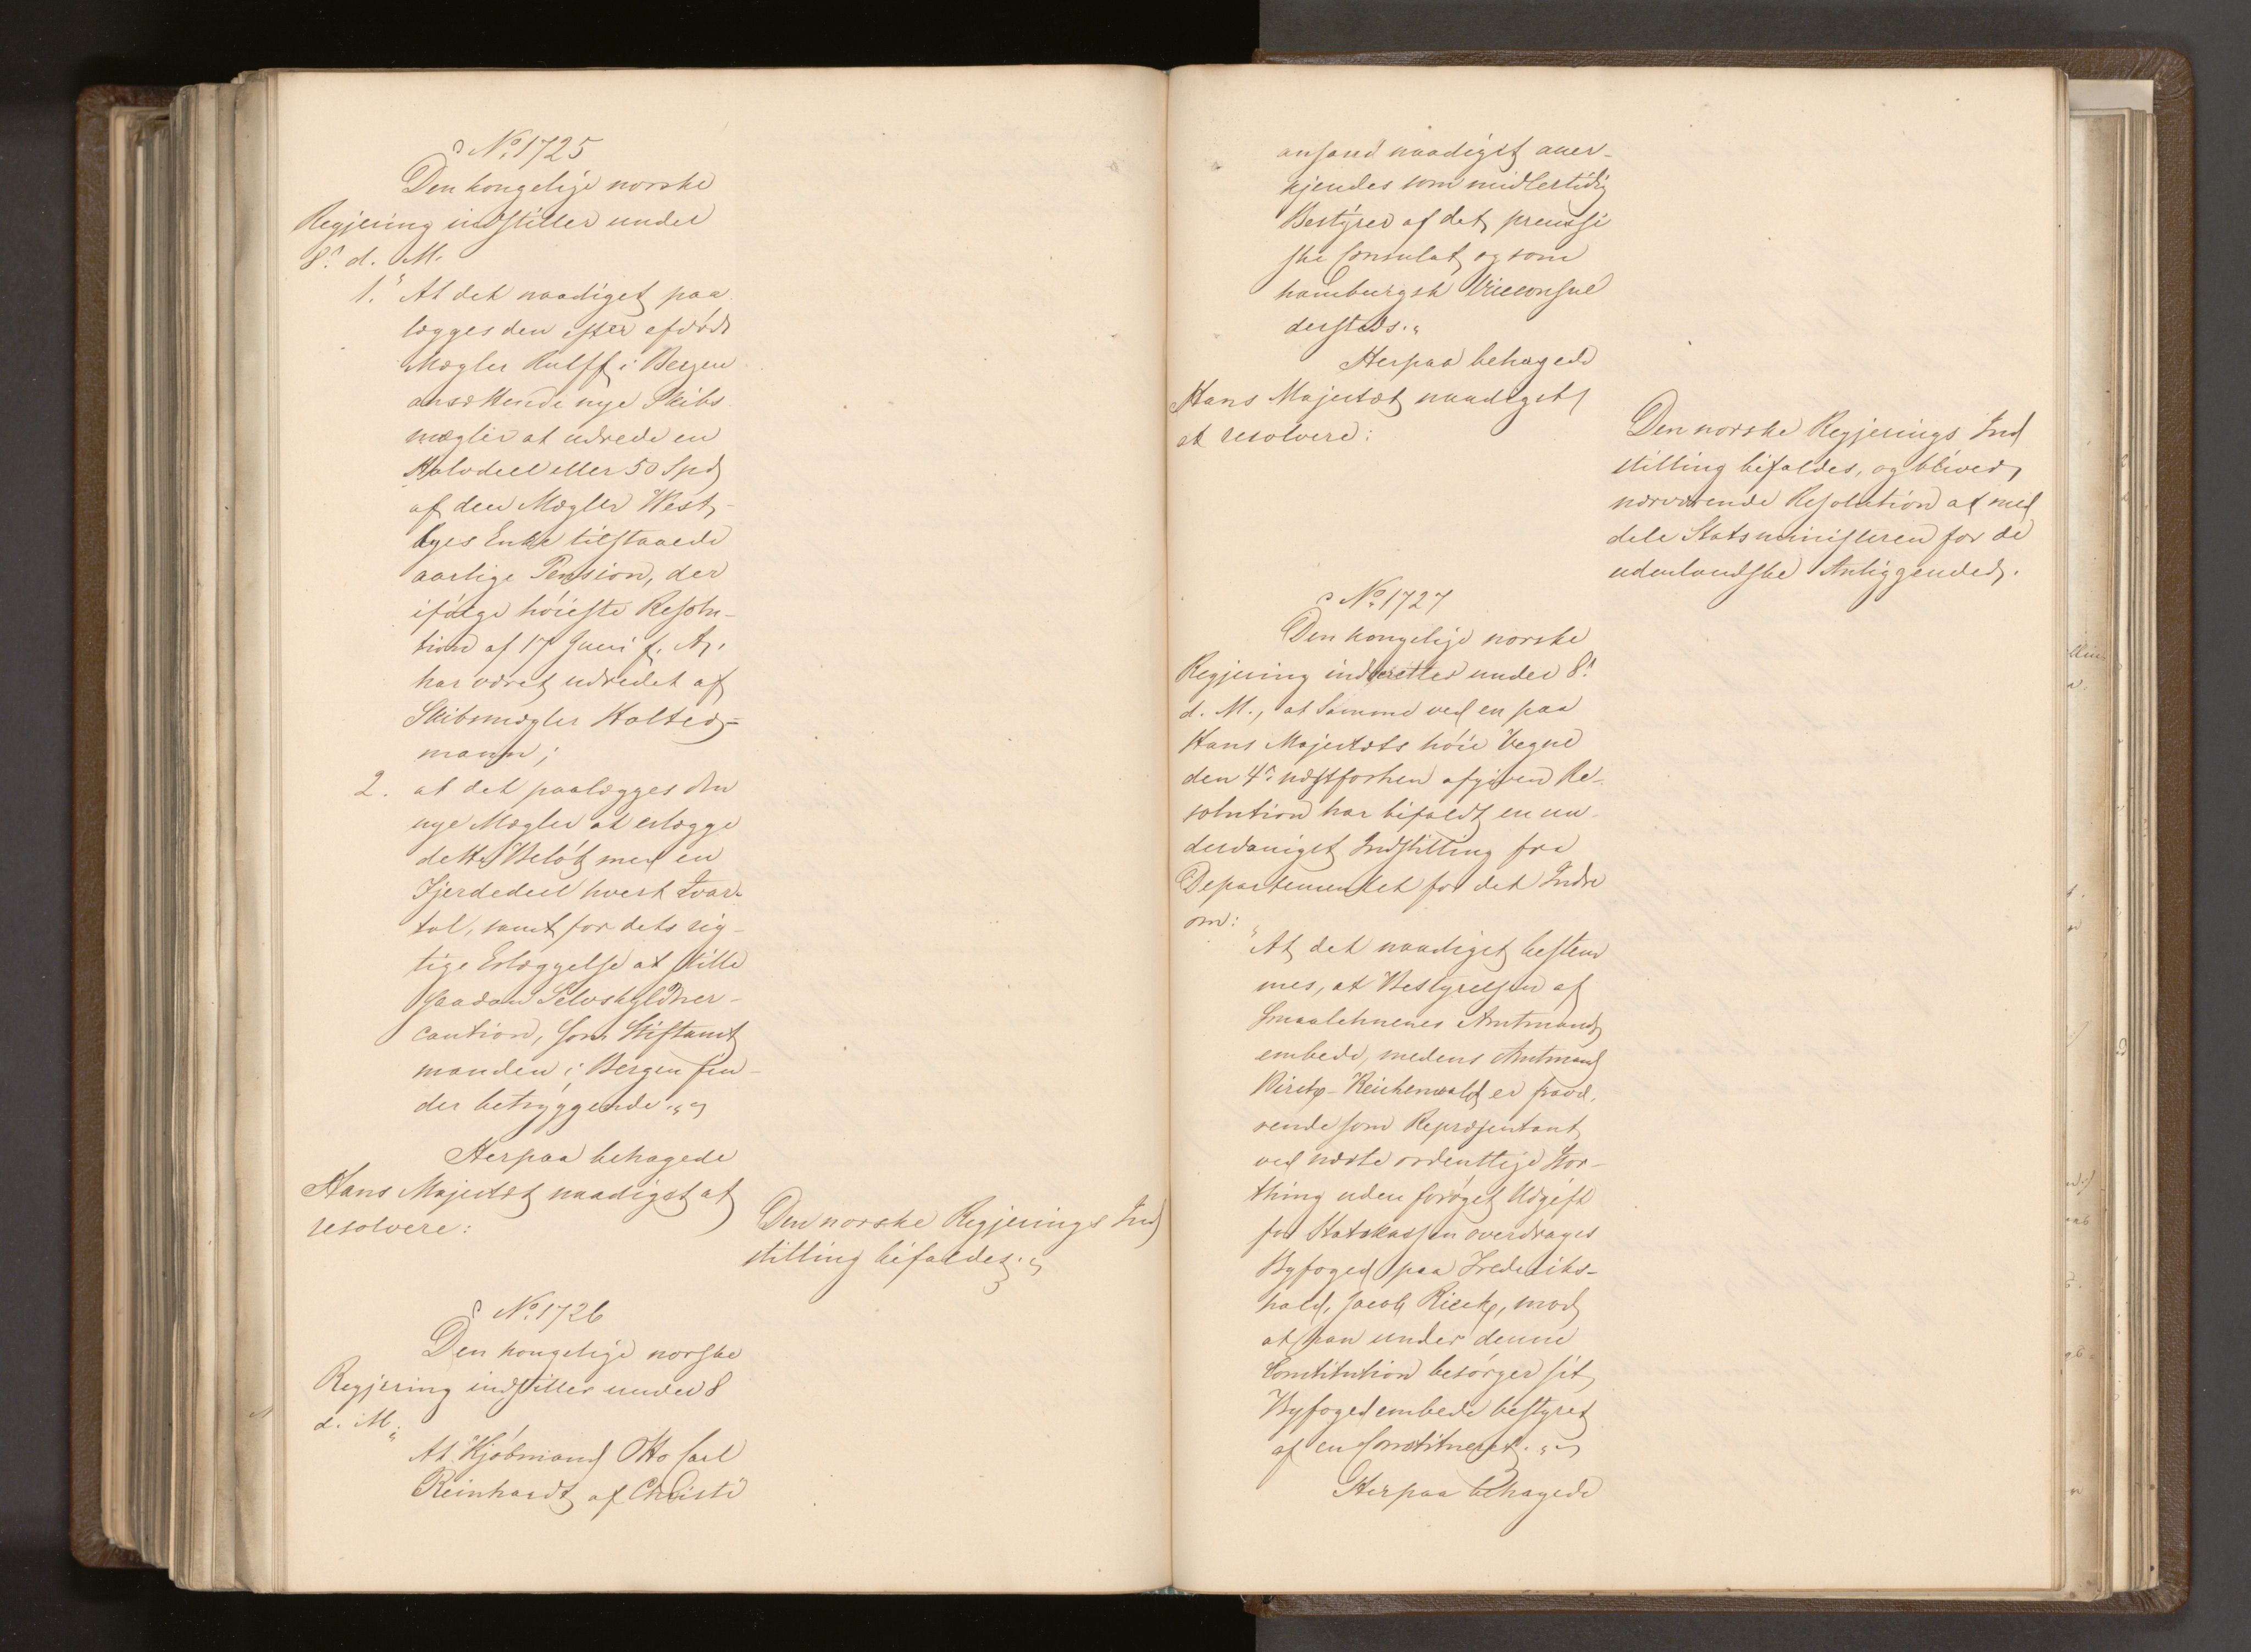 No 1725
Den kongelige norske
Regjering indstiller under
8. d. M.
1. "At det naadigst paa
lægges den efter afdøde
Mægler Rulffs i Bergen
ansættende nye Skibs
mægler at udrede en
Halvdeel eller 50 Spd
af den Mægler West-
byes Enke tilstaaede
aarlige Pension, der
ifølge høieste Resolu-
tion af 17 Juni f. A.
har været udredet af
Skibsmægler Holter-
mann;
2. at det paalægges den
nye Mægler at erlægge
dette Beløb med en
Fjerdedeel hvert Qvar-
tal, samt for dets rig-
tige Erlæggelse at stille
saadan Selvskyldner-
caution, som Stiftamt
manden i Bergen fin-
der betryggende."
Herpaa behagede
Hans Majestæt naadigst at
resolvere:
Den norske Regjerings Ind
stilling bifaldes.
No 1726
Den kongelige norske
Regjering indstiller under 8
d. M.
"At Kjøbmand Otto Carl
Reinhardt af Christi
ansand naadigst aner-
kjendes som midlertidig
Bestyrer af det preussi
ske Consulat og som
hamburgsk Viceconsul
dersteds."
Herpaa behagede
Hans Majestæt naadigst
at resolvere:
Den norske Regjerings Ind
stilling bifaldes, og bliver
nærværende Resolution at med
dele Statsministeren for de
udenlandske Anliggender.
No 1727
Den kongelige norske
Regjering indberetter under 8.
d. M., at Samme ved en paa
Hans Majestæts høie Vegne
den 4. næstforhen afgiven Re-
solution har bifaldt en un-
derdanigst Indstilling fra
Departementet for det Indre
om:
"At det naadigst bestem
mes, at Bestyrelsen af
Smaalehnenes Amtmands
embede, medens Amtmand
Birch-Reichenwald er fravæ-
rende som Repræsentant
ved næste ordentlige Stor-
thing uden forøget Udgift
for Statskassen overdrages
Byfoged paa Frederiks-
hald, Jacob Rieck, mod
at han under denne
Constitution besørger sit
Byfogedembede bestyret
af en Constitueret."
Herpaa behagede